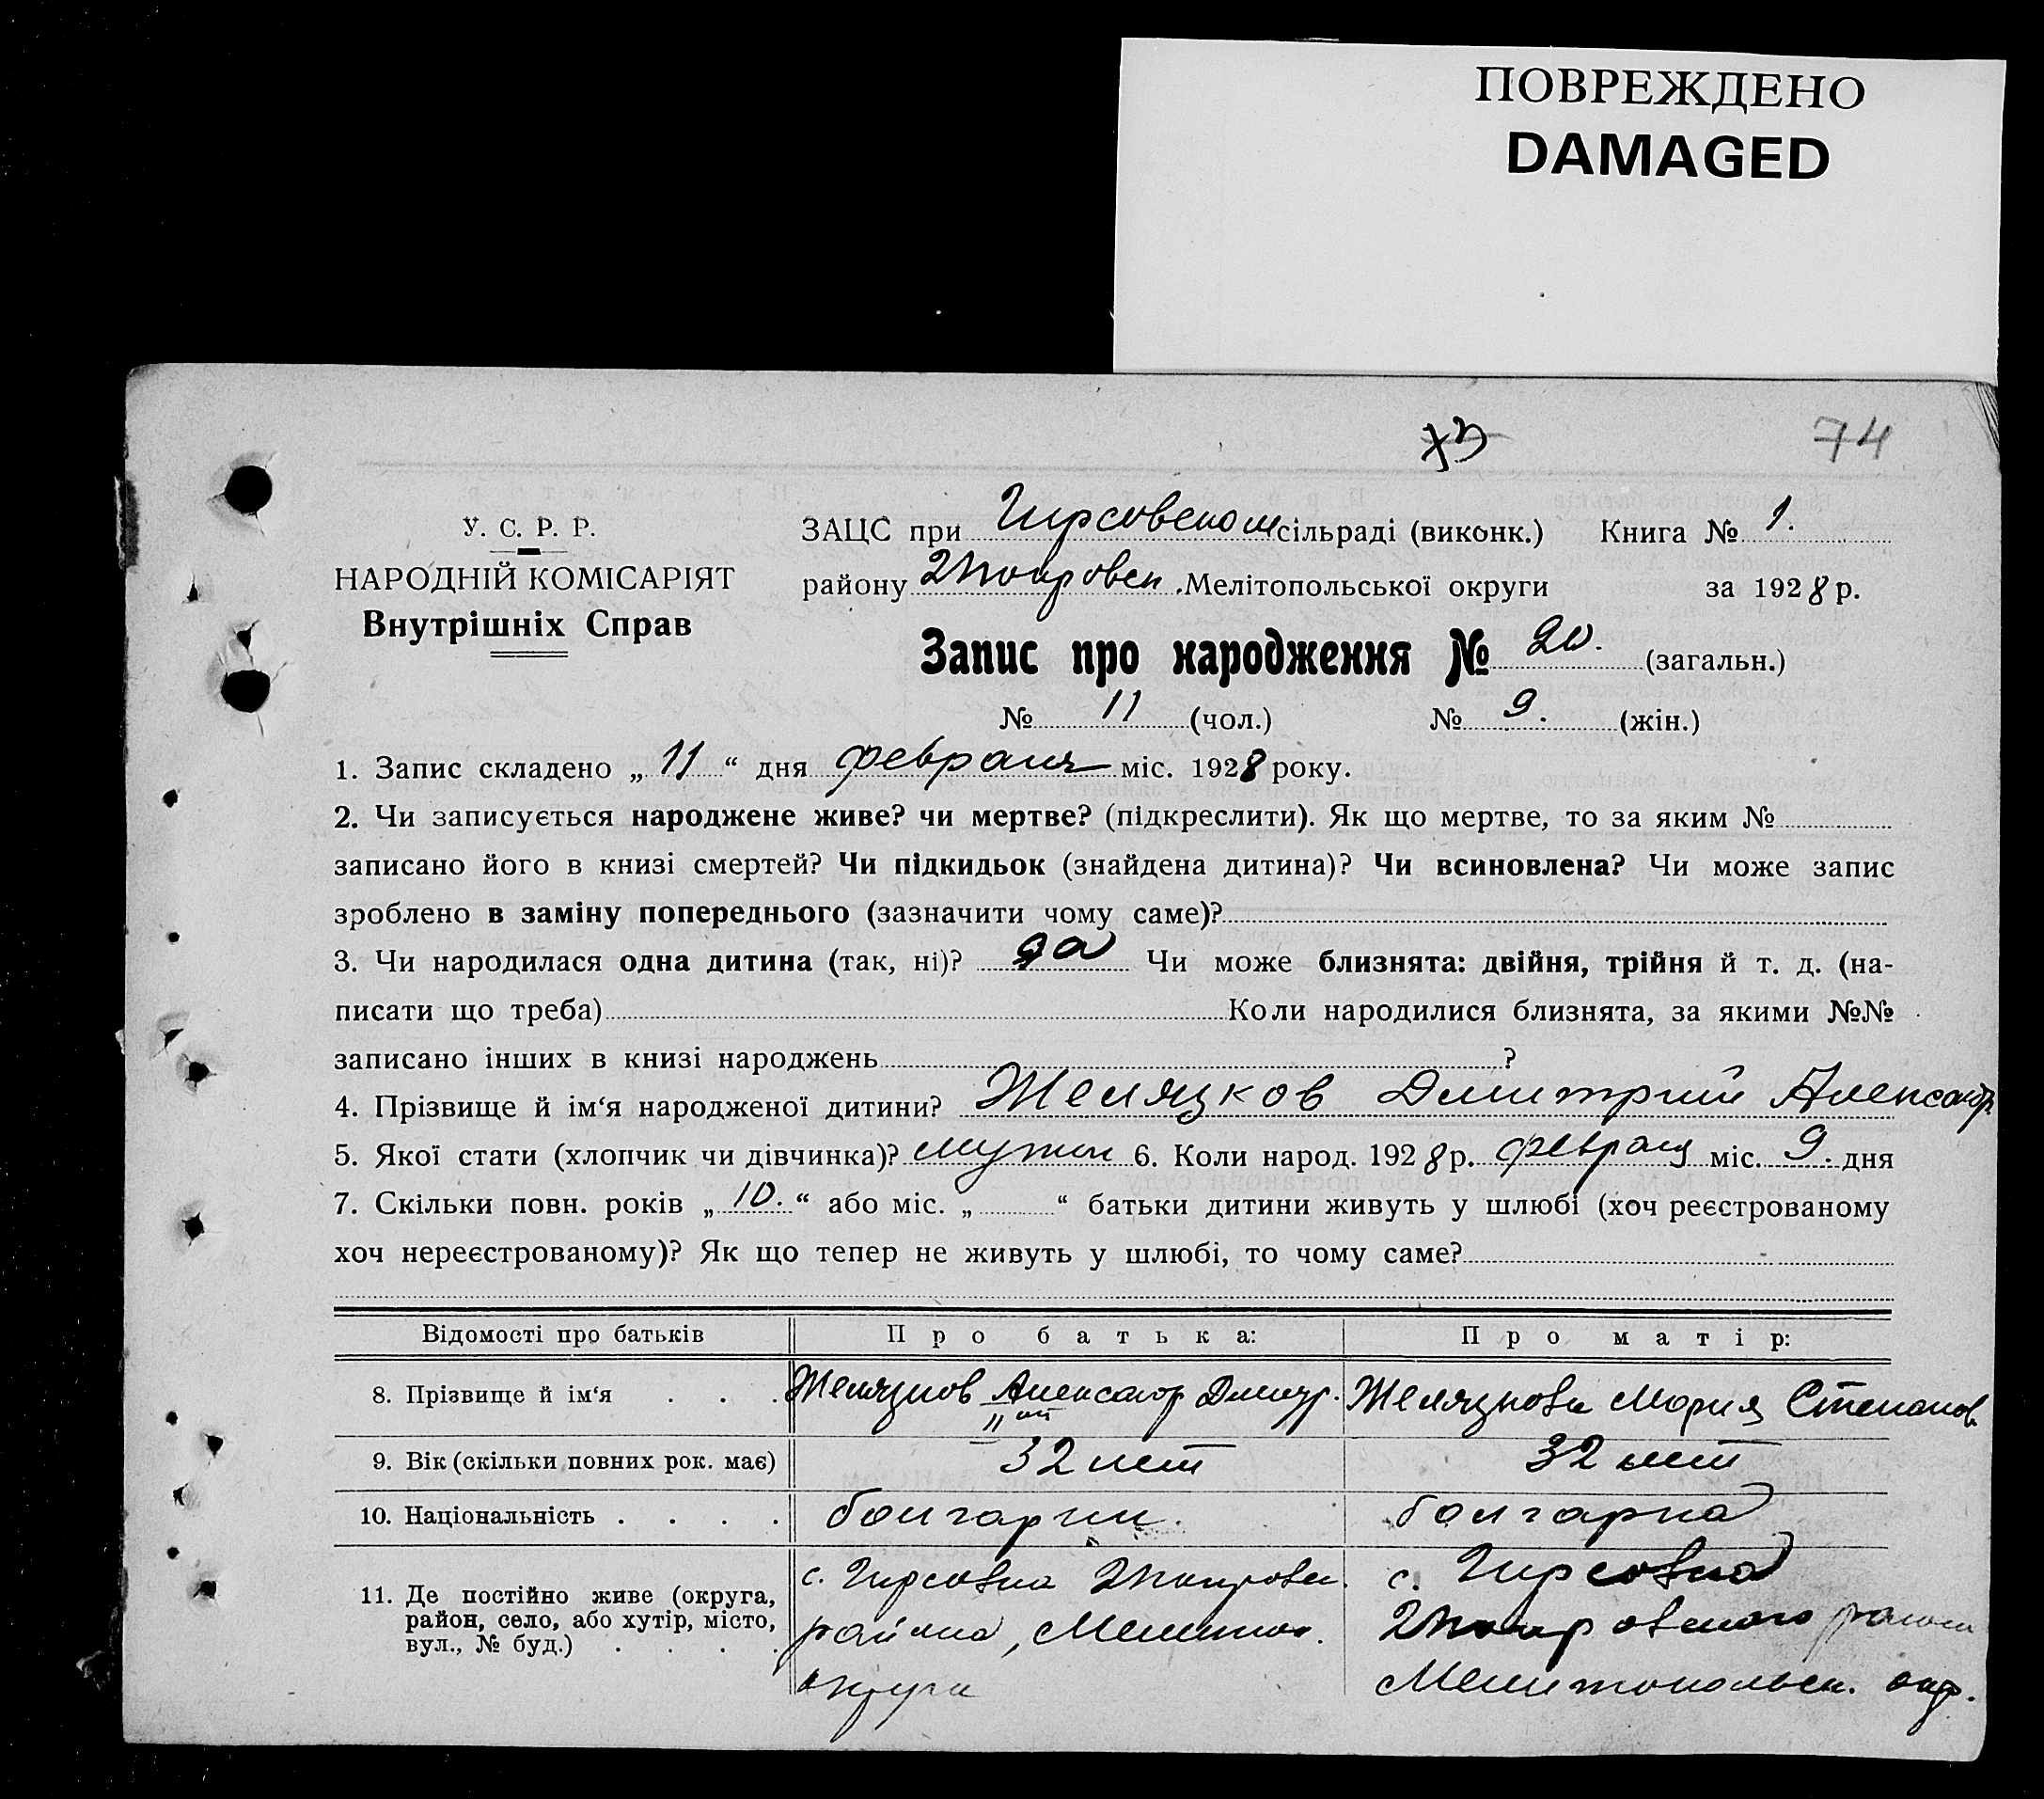 ПОВРЕЖДЕНО
DAMAGED
73
74
У. С. Р. Р.
НАРОДНІЙ КОМІСАРІЯТ
Внутрішніх Справ
ЗАЦС при Гирсовском сільраді (виконк.) Книга № 1.
району Мелітопольської округи за 1928 р.
Запис про народження № 20. (загальн.)
№ 11 (чол.) № 9. (жін.)
1. Запис складено „ 11 “ дня февраля міс. 1928 року.
2. Чи записується народжене живе? чи мертве? (підкреслити). Як що мертве, то за яким №
записано його в книзі смертей? Чи підкидьок (знайдена дитина)? Чи всиновлена? Чи може запис
зроблено в заміну попереднього (зазначити чому саме)?
3. Чи народилася одна дитина (так, ні)? да Чи може близнята: двійня, трійня й т. д. (на-
писати що треба) Коли народилися близнята, за якими №№
записано інших в книзі народжень ?
4. Прізвище й ім‘я народженої дитини? Желязков Дмитрий Александр
5. Якої стати (хлопчик чи дівчинка)? мужск 6. Коли народ. 1928 р. февраля міс. 9. дня
7. Скільки повн. років „ 10. “ або міс. „ “ батьки дитини живуть у шлюбі (хоч реєстрованому
хоч нереєстрованому)? Як що тепер не живуть у шлюбі, то чому саме?
Відомості про батьків Про батька: Про матір:
8. Прізвище й ім‘я . . . Желязков Александр Дмитр. Желязкова Мария Степанов.
9. Вік (скільки повних рок. має) 32 лет 32 лет
10. Національність . . . . болгарин. болгарка
11. Де постійно живе (округа,
район, село, або хутір, місто,
вул., № буд.) . . . .
с. Гирсовка
района, Мелитоп.
округа
с. Гирсовка
района
Мелитопольск. окр.